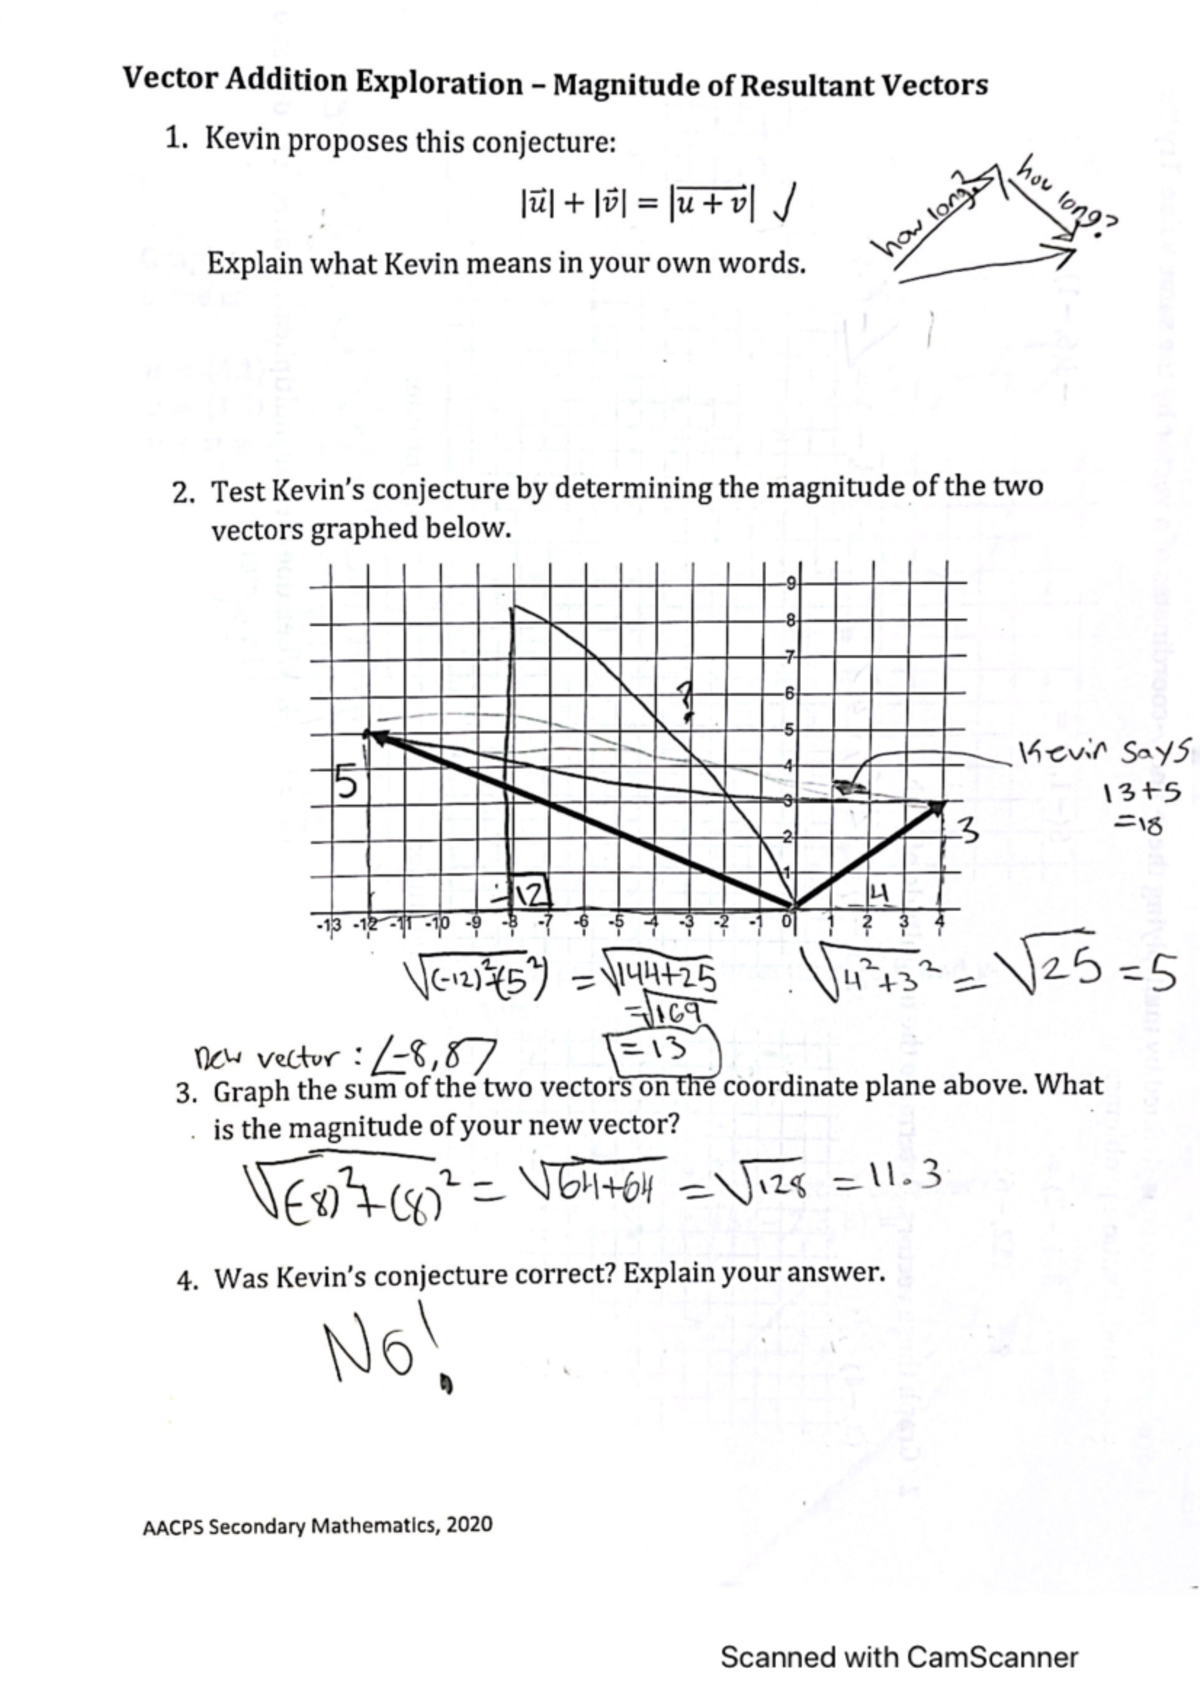 Vector Addition Exploration – Magnitude of Resultant Vectors
1. Kevin proposes this conjecture:
|u⃗| + |v⃗| = |u + v| ✓
how long?
how long?
Explain what Kevin means in your own words.
2. Test Kevin's conjecture by determining the magnitude of the two
vectors graphed below.
9
8
7
6
5
4
3
2
1
?
5
-12
3
4
Kevin says
13+5
=18
-13 -12 -11 -10 -9 -8 -7 -6 -5 -4 -3 -2 -1 0 1 2 3 4
√(-12)²+(5²) = √144+25
=√169
=13
√4²+3² = √25 = 5
new vector : ⟨-8,8⟩
3. Graph the sum of the two vectors on the coordinate plane above. What
is the magnitude of your new vector?
√(-8)²+(8)² = √64+64 = √128 = 11.3
4. Was Kevin's conjecture correct? Explain your answer.
No!
AACPS Secondary Mathematics, 2020
Scanned with CamScanner